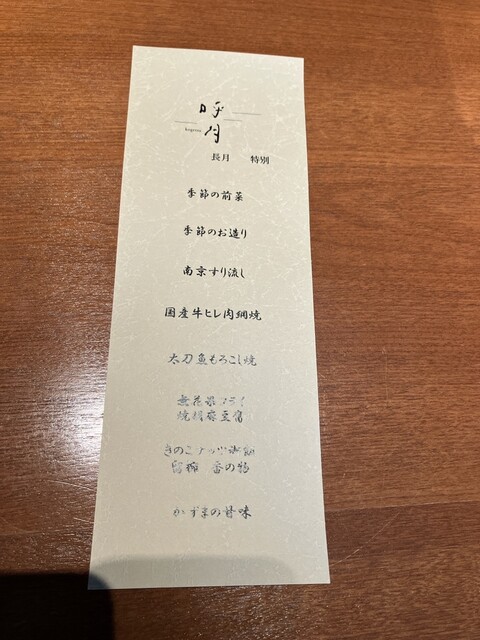 呼月
長月 特別
季節の前菜
季節のお造り
南京すり流し
国産牛ヒレ肉網焼
太刀魚もろこし焼
無花果
焼胡麻豆腐
きのこ
留椀 香の物
かずまの甘味